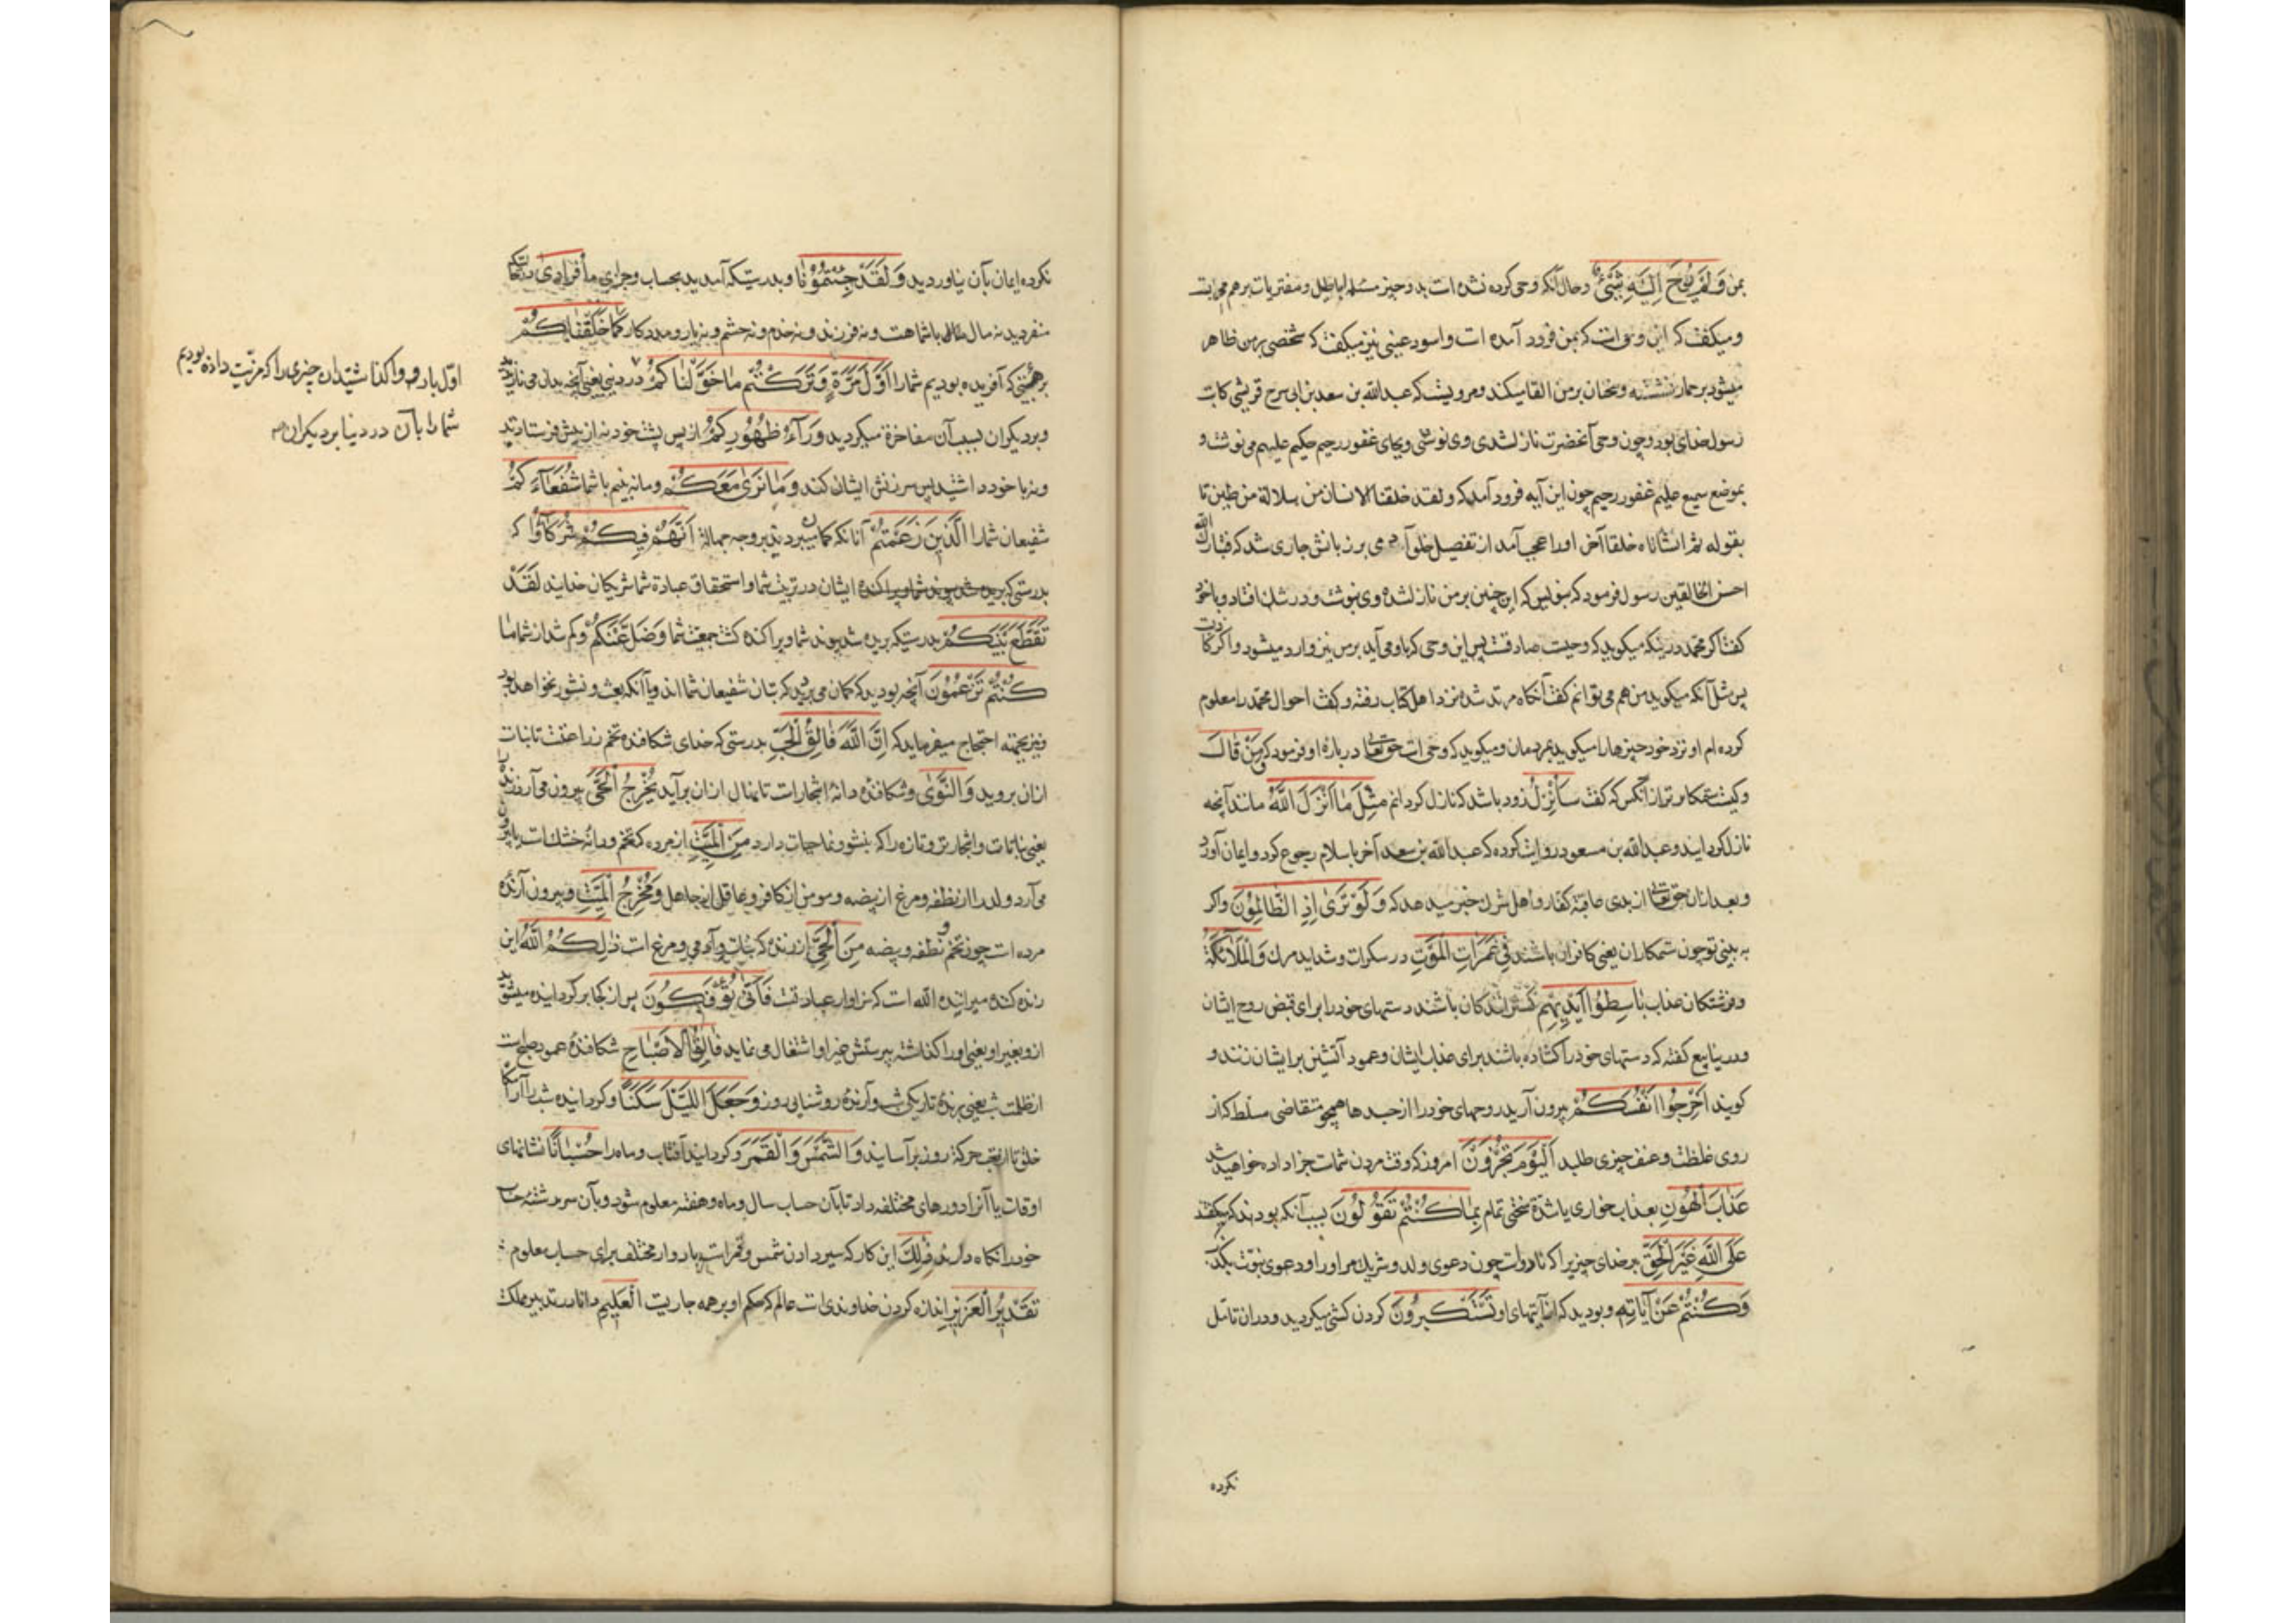 بمن وَلَمْ يُوحَ اِلَيْهِ شَيْئٌ وحال آنکه وحی کرده نشده است بدو چیز مسیلمه اباطیل و مفتریات برهم می بست
و میگفت که این وحی است که بمن فرود آمده است و اسود عنسی نیز میگفت که شخصی بر من ظاهر
میشود بر حمار نشسته و سخنان بر من القا میکند و مرویست که عبدالله بن سعد بن ابی سرح قرشی کاتب
رسول خدای بود و چون وحی آنحضرت نازل شدی وی نوشتی و بجای غفور رحیم حکیم علیم می نوشت و
بموضع سمیع علیم غفور رحیم چون این آیه فرود آمد که و لقد خلقنا الانسان من سلالة من طین تا
بقوله ثم انشاناه خلقا آخر او را عجب آمد از تفصیل خلق آدمی بر زبانش جاری شد که فتبارك الله
احسن الخالقین رسول فرمود که بنویس که این چنین بر من نازل شده وی ننوشت و در شك افتاد و با خود
گفت اگر محمد درینکه میگوید که وحیست صادقست پس این وحی که باو می آید بر من نیز وارد میشود و اگر کاذبست
پس مثل آنکه میگوید من هم می توانم گفت آنگاه مرتد شد و نزد اهل کتاب رفته و گفت احوال محمد را معلوم
کرده ام او نزد خود چیزها را میگوید بمردمان و میگوید که وحی است حق تعالی درباره او فرمود که وَمَنْ قَالَ
و کیست ستمکارتر از آنکس که گفت سَاُنْزِلُ زود باشد که نازل گردانم مِثْلَ مَا اَنْزَلَ اللهُ مانند آنچه
نازل گردانید و عبدالله بن مسعود روایت کرده که عبدالله بن سعد آخر باسلام رجوع کرد و ایمان آورد
و بعد ازان حق تعالی از بدی عاقبة کفار و اهل شرك خبر میدهد که وَلَوْ تَرَى اِذِ الظَّالِمُونَ و اگر
به بینی تو چون ستمکاران یعنی کافران باشند فِي غَمَرَاتِ الْمَوْتِ در سکرات و شداید مرك وَالْمَلَائِكَةُ
و فرشتکان عذاب بَاسِطُوا اَيْدِيهِمْ گسترانندکان باشند دستهای خود را برای قبض روح ایشان
و در ینابیع گفته که دستهای خود را گشاده باشند برای عذاب ایشان و عمود آتشین بر ایشان زنند و
گویند اَخْرِجُوا اَنْفُسَكُمْ بیرون آرید روحهای خود را از جسدها همچو متقاضی مسلط که از
روی غلظت و عنف چیزی طلبد اَلْيَوْمَ تُجْزَوْنَ امروز که وقت مردن شماست جزا داده خواهید شد
عَذَابَ الْهُونِ بعذاب خواری با شدة سختی تمام بِمَا كُنْتُمْ تَقُولُونَ بسبب آنکه بودید که میگفتید
عَلَى اللهِ غَيْرَ الْحَقِّ بر خدای چیزیرا که ناروا است چون دعوی ولد و شریك مر او را و دعوی نبوت بکذب
وَكُنْتُمْ عَنْ اٰيَاتِهِ و بودید که از آیتهای او تَسْتَكْبِرُونَ گردن کشی میکردید و در ان تامل
نکرده
نکرده ایمان بآن نیاوردید وَلَقَدْ جِئْتُمُونَا و بدرستیکه آمدید بحساب و جزای ما فُرَادَى
منفردید نه مال با شماست و نه فرزند و نه خدم و نه حشم و نه یار و مددکار كَمَا خَلَقْنَاكُمْ
بر هیئتی که آفریده بودیم شما را اَوَّلَ مَرَّةٍ وَتَرَكْتُمْ مَا خَوَّلْنَاكُمْ در دنیی یعنی آنچه بدان می نازیدید
و بر دیکران بسبب آن مفاخرة میکردید وَرَاءَ ظُهُورِكُمْ از پس پشت خود نه از پیش فرستادید
و نه با خود داشتید پس سرزنش ایشان کند وَمَا نَرَى مَعَكُمْ و ما نه بینیم با شما شُفَعَاءَكُمُ
شفیعان شما را الَّذِينَ زَعَمْتُمْ آنانکه گمان میبردید بر وجه جهالة اَنَّهُمْ فِيكُمْ شُرَكَاؤُا که
بدرستی که ایشان در تربیت شما و استحقاق عبادة شما شریکان خدایند لَقَدْ
تَقَطَّعَ بَيْنَكُمْ بدرستیکه بریده شد پیوند شما و پراکنده گشت جمعیت شما وَضَلَّ عَنْكُمْ و گم شد از شما مَا
كُنْتُمْ تَزْعُمُونَ آنچه بودید که گمان می بردید که بتان شفیعان شما اند و یا آنکه بعث و نشور نخواهد بود
و نیز بجهة احتجاج میفرماید که اِنَّ اللهَ فَالِقُ الْحَبِّ بدرستی که خدای شکافنده تخم زراعتست تا نبات
ازان بروید وَالنَّوٰى و شکافنده دانه اشجارات تا نهال ازان برآید يُخْرِجُ الْحَيَّ بیرون می آرد زنده
یعنی نباتات و اشجار تر و تازه را که نشو و نما حیات دارد مِنَ الْمَيِّتِ از مرده که تخم و دانه خشك است یا بیرون
می آرد ولد را از نطفه و مرغ از بیضه و مومن از کافر و عاقل از جاهل وَمُخْرِجُ الْمَيِّتِ و بیرون آرنده
مرده است چون تخم و نطفه و بیضه مِنَ الْحَيِّ از زنده که نبات و آدمی و مرغ است ذٰلِكُمُ اللهُ این
زنده کننده میراننده الله است که سزاوار عبادتست فَاَنّٰى تُؤْفَكُونَ پس از کجا برگردانیده میشوید
ازو بغیر او یعنی او را گذاشته بپرستش غیر او اشتغال می نماید فَالِقُ الْاَصْبَاحِ شکافنده عمود صبح است
از ظلمت شب یعنی برنده تاریکی شب و آرنده روشنایی روز وَجَعَلَ اللَّيْلَ سَكَنًا و گردانیده شب را آرامگاه
خلق تا از تعب حرکة روز برآسایند وَالشَّمْسَ وَالْقَمَرَ و گردانید آفتاب و ماه را حُسْبَانًا نشانهای
اوقات یا آنرا دورهای مختلفه داد تا بآن حساب سال و ماه و هفته معلوم شود و بآن سر رشته حساب
خود را نگاه دارند ذٰلِكَ این کار که سیر دادن شمس و قمر است بادوار مختلف برای حساب معلوم
تَقْدِيرُ الْعَزِيزِ اندازه کردن خداوندی است عالم که حکم او بر همه جاریست الْعَلِيمِ دانا در تدبیر ملك
اول بار و واگذاشتید ان چیزی را که مزیت داده بودیم
شما را بآن در دنیا بر دیکران